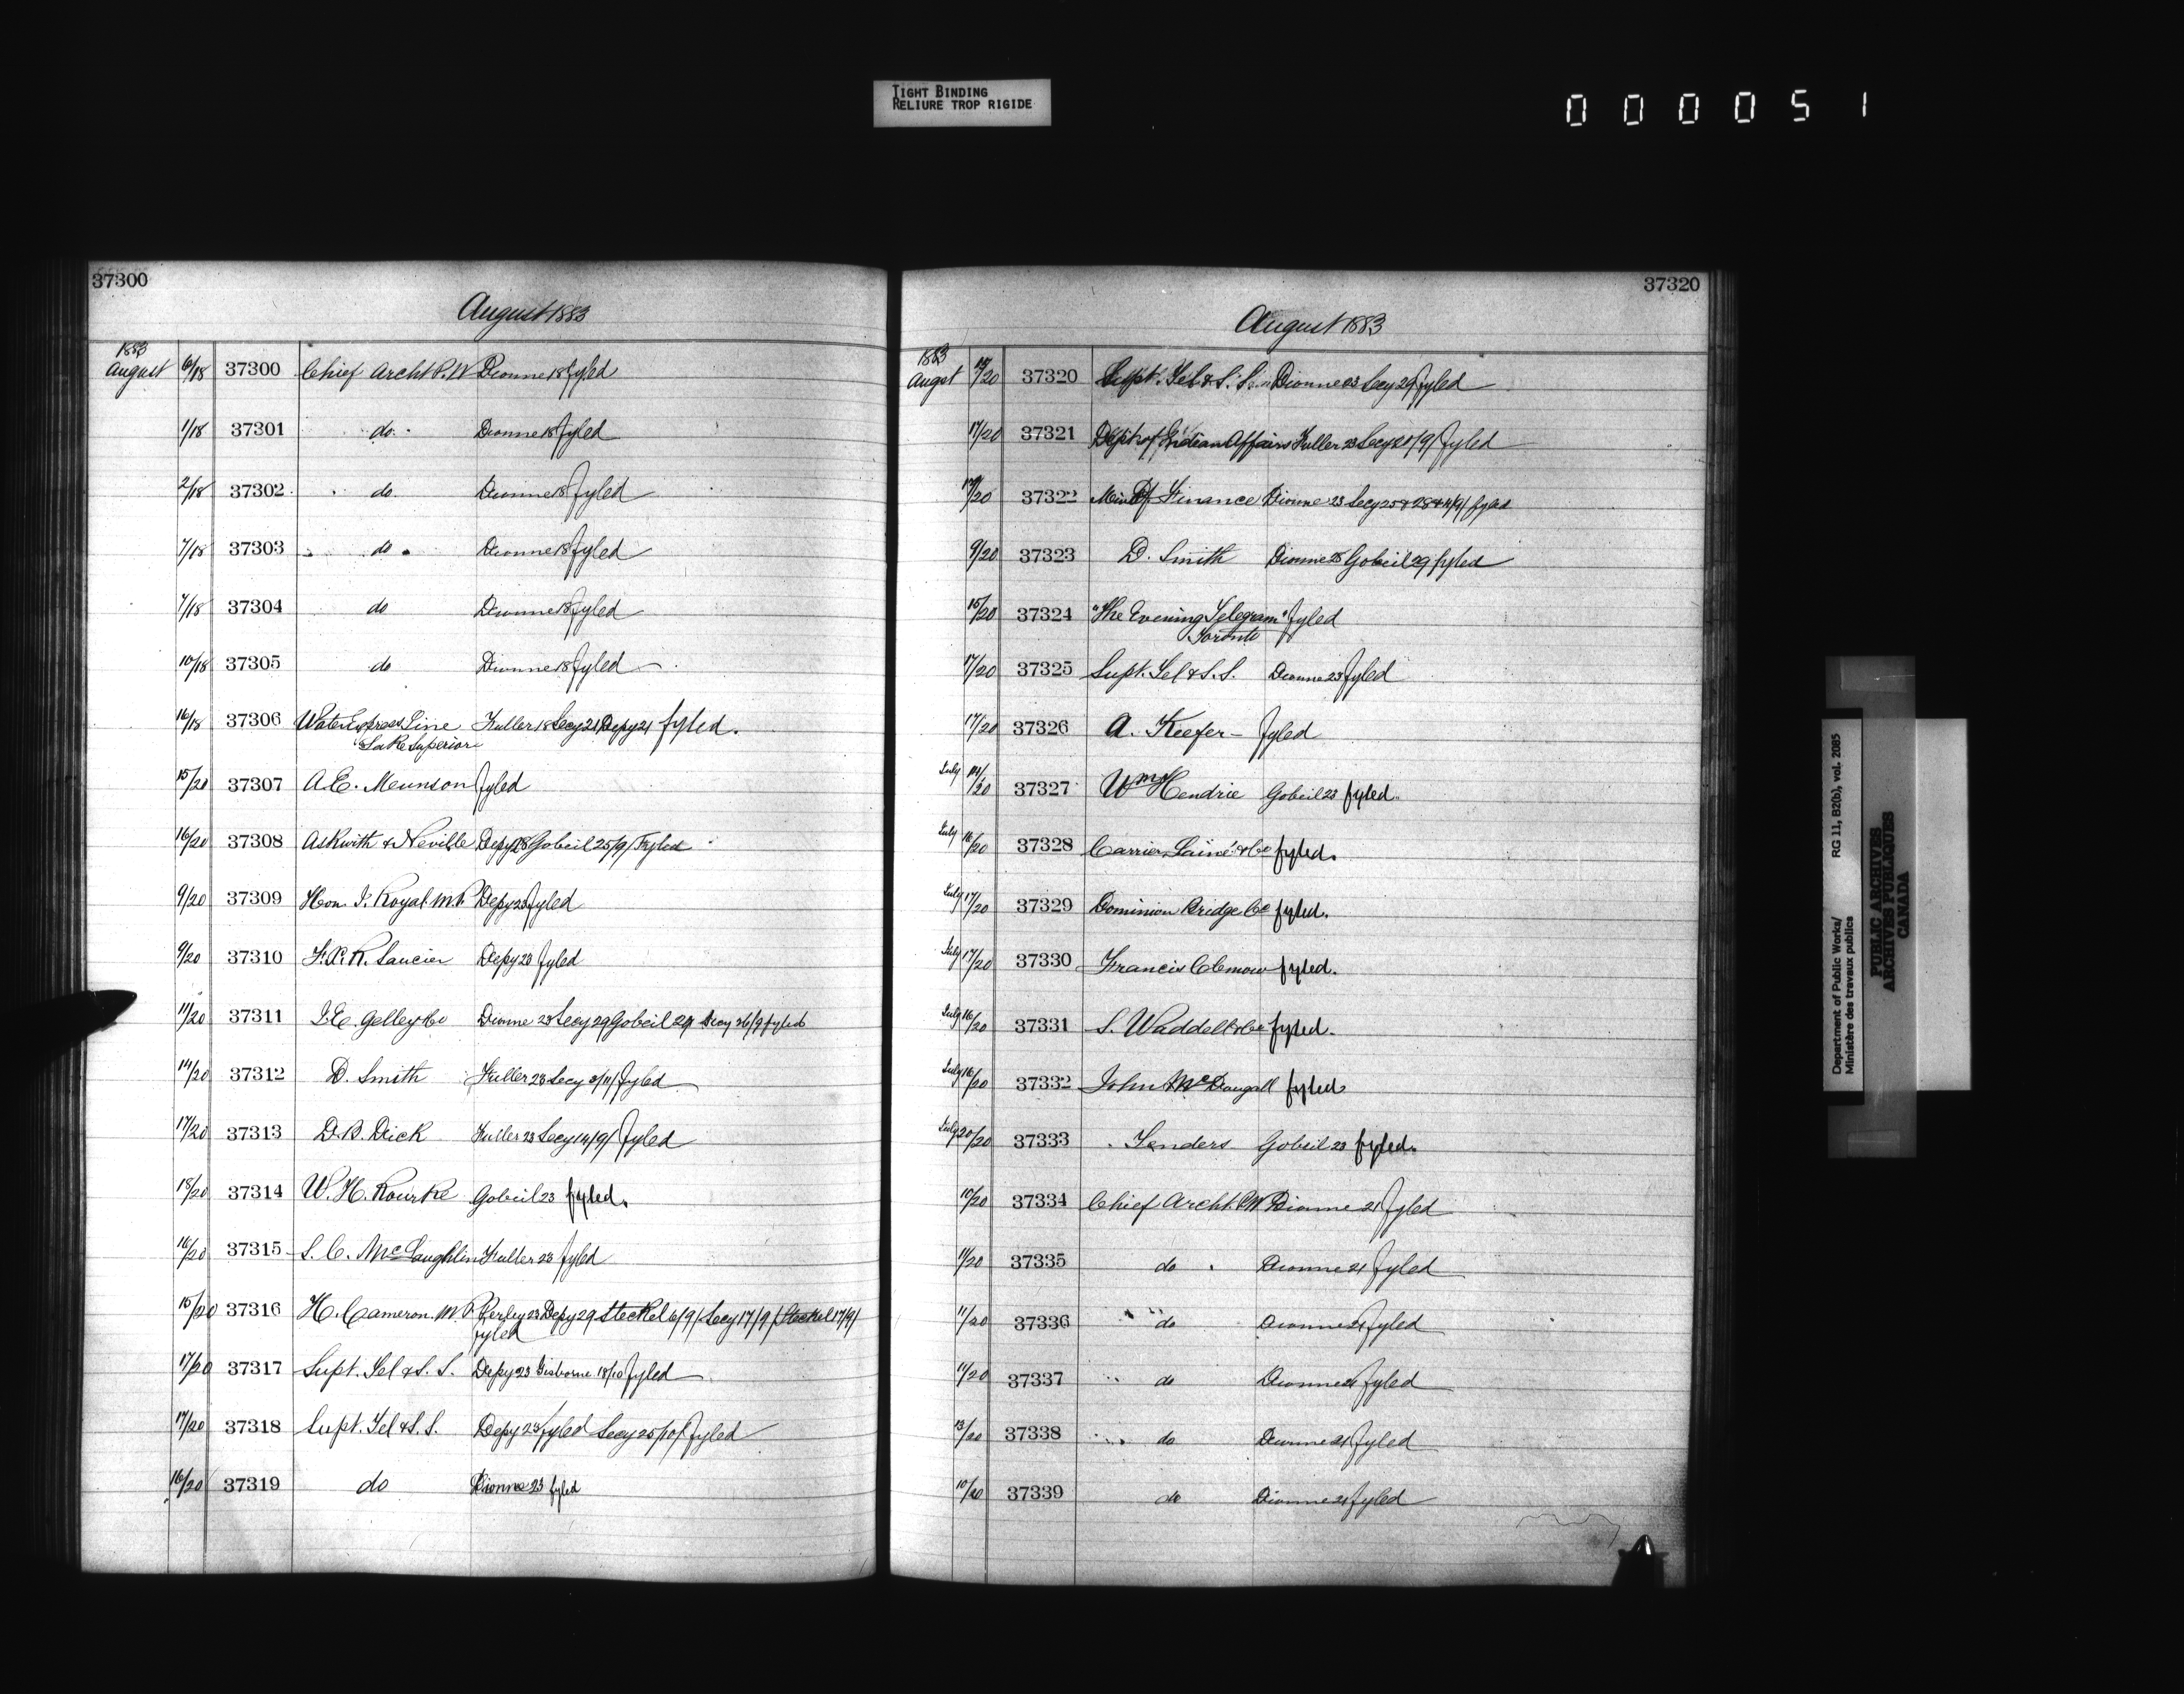 TIGHT BINDING
RELIURE TROP RIGIDE
000051
37300
August 1883
1883
August 6/18 37300 Chief Archt P.W Dionne 18 fyled
1/18 37301 do Dionne 18 fyled
2/18 37302 do Dionne 18 fyled
7/18 37303 do Dionne 18 fyled
7/18 37304 do Dionne 18 fyled
10/18 37305 do Dionne 18 fyled
16/18 37306 Water Express Line Fuller 18 Secy 21 Depy 21 fyled.
Lake Superior
15/20 37307 A.E. Meunson fyled
16/20 37308 Askwith & Neville Depy 28 Gobeil 25/9/ Fyled
9/20 37309 Hon. J. Royal M.P. Depy 23 fyled
9/20 37310 F.X.R. Saucier Depy 23 fyled
11/20 37311 J.E. Gelley & Co Dionne 23 Secy 29 Gobeil 29 Secy 26/9 fyled
14/20 37312 D. Smith Fuller 23 Secy 3/11/ fyled
17/20 37313 D.B. Dick Fuller 23 Secy 14/9/ fyled
18/20 37314 W.H. Rourke Gobeil 23 fyled.
16/20 37315 S.C. McLaughlin Fuller 23 fyled
15/20 37316 H. Cameron. M.P. Perley 23 Depy 29 Steckel 6/9/ Secy 17/9/ Steckel 17/9/
fyled
17/20 37317 Supt. Tel & S.S. Depy 23 Gisborne 18/10 fyled
17/20 37318 Supt. Tel & S.S. Depy 23 fyled Secy 25/10/ fyled
16/20 37319 do Dionne 23 fyled
37320
August 1883
1883
Augst /20 37320 Supt. Tel & S.S. Dionne 23 Secy 29 fyled
17/20 37321 Dept of Indian Affairs Fuller 23 Secy 28/9/ fyled
/20 37322 Min Of Finance Dionne 23 Secy 25 & 28 & 4/9/ fyled
9/20 37323 D. Smith Dionne 28 Gobeil 29 fyled
15/20 37324 "The Evening Telegram" fyled
Toronto
17/20 37325 Supt. Tel & S.S. Dionne 23 fyled
17/20 37326 A. Keefer - fyled
July /20 37327 Wm Hendrie Gobeil 23 fyled.
July 16/20 37328 Carrier, Lainé & Co fyled.
July 17/20 37329 Dominion Bridge Co fyled.
July 17/20 37330 Francis Clemow fyled.
July 16/20 37331 S. Waddell & Co fyled.
July 16/20 37332 John McDougall fyled
July 20/20 37333 Tenders Gobeil 23 fyled.
10/20 37334 Chief Archt. P.W. Dionne 21 fyled
11/20 37335 do Dionne 21 fyled
11/20 37336 do Dionne 21 fyled
11/20 37337 do Dionne 21 fyled
13/20 37338 do Dionne 21 fyled
10/20 37339 do Dionne 21 fyled
Department of Public Works/ RG 11, B2(b), vol. 2085
Ministère des travaux publics
PUBLIC ARCHIVES
ARCHIVES PUBLIQUES
CANADA